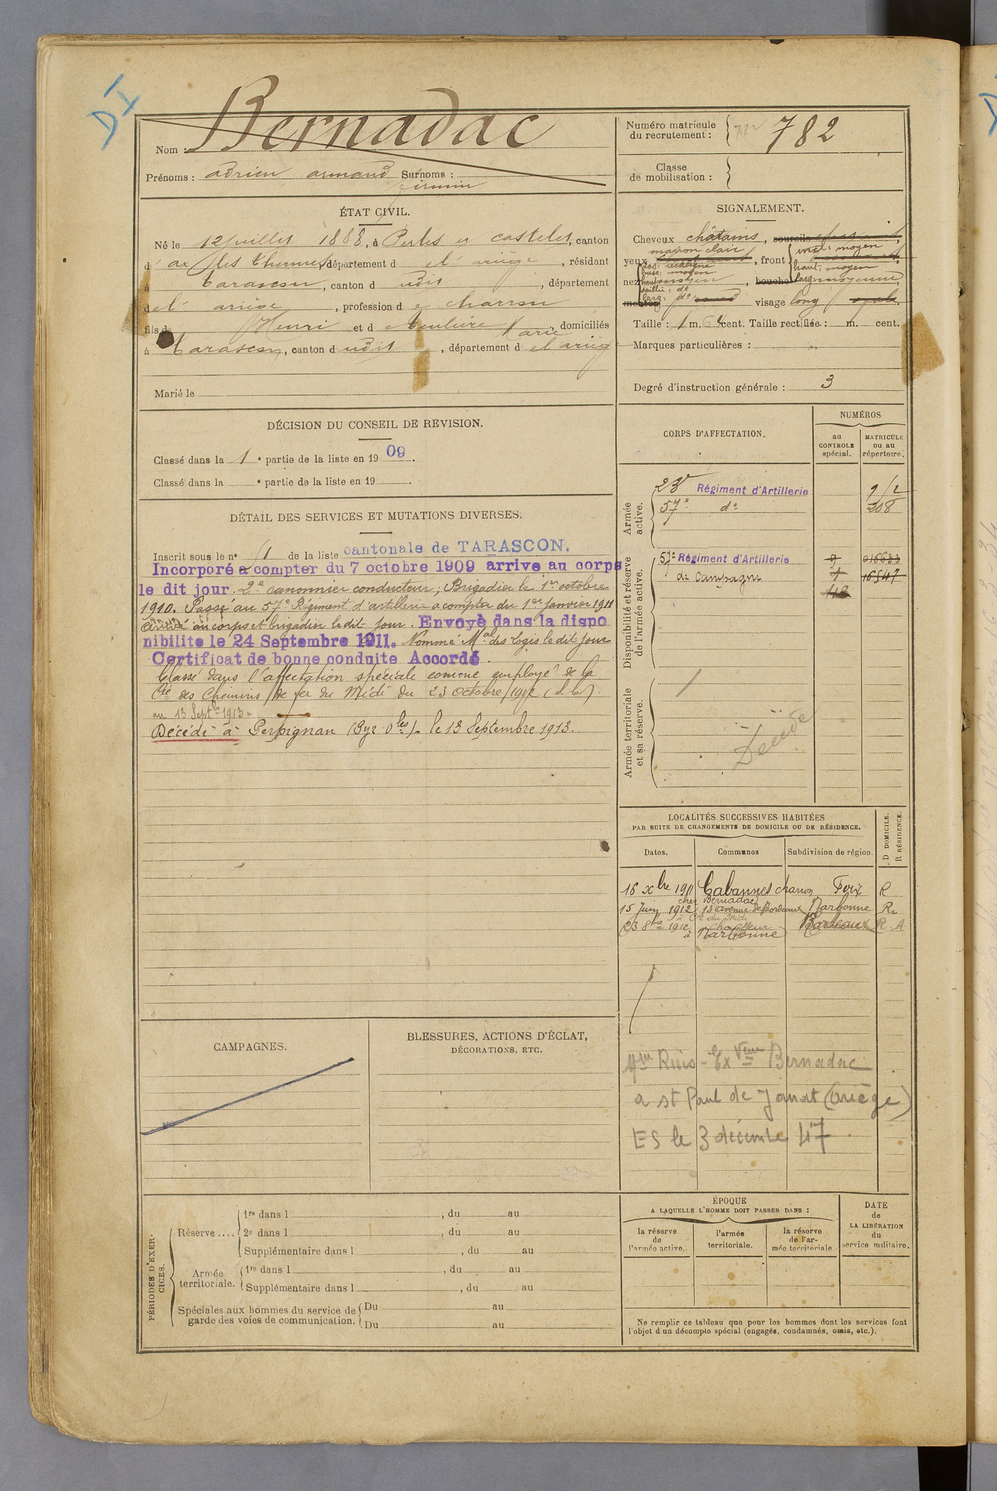 DI
Nom : Bernadac
Prénoms : adrien armand Surnoms :
firmin
Numéro matricule du recrutement : 782
Classe de mobilisation :
ÉTAT CIVIL.
Né le 12 juillet 1888, à Perles et castelet, canton
d' ax les thermes, département d e l'ariège, résidant
à Tarascon, canton d udit, département
d e l'ariège, profession d e charron
fils d Henri et d e Marie, domiciliés
à Tarascon, canton d udit, département d e l'ariège
Marié le
SIGNALEMENT.
Cheveux châtains, sourcils
marron clair
incl: moyen
yeux, front
haut: moyen
larg: moyenne
nez, bouche
menton visage long
Taille : 1 m. 6 cent. Taille rectifiée : m. cent.
Marques particulières :
Degré d'instruction générale : 3
DÉCISION DU CONSEIL DE REVISION.
Classé dans la 1e partie de la liste en 1909.
Classé dans la e partie de la liste en 19 .
CORPS D'AFFECTATION.
NUMÉROS
au CONTROLE spécial.
MATRICULE ou au répertoire.
Armée active.
23e Régiment d'Artillerie
57e do 308
Disponibilité et réserve de l'armée active.
57e Régiment d'Artillerie 9
de Campagne
Armée territoriale et sa réserve.
Décédé
DÉTAIL DES SERVICES ET MUTATIONS DIVERSES.
Inscrit sous le no 41 de la liste cantonale de TARASCON.
Incorporé à compter du 7 octobre 1909 arrive au corps
le dit jour. 2e canonnier conducteur, Brigadier le 1er octobre
1910. Passé au 57e Régiment d'artillerie à compter du 1er janvier 1911
arrivé au corps et brigadier le dit jour. Envoyé dans la dispo
nibilité le 24 Septembre 1911. Nommé Mal des logis le dit jour
Certificat de bonne conduite Accordé.
Classé dans l'affectation spéciale comme employé de la
Cie des Chemins de fer du Midi du 23 Octobre 1912
au 13 Septbre 1913.
Décédé à Perpignan (Pyr. Oles) le 13 Septembre 1913.
LOCALITÉS SUCCESSIVES HABITÉES
PAR SUITE DE CHANGEMENTS DE DOMICILE OU DE RÉSIDENCE.
Dates. Communes Subdivision de région.
D DOMICILE. R RÉSIDENCE.
16 xbre 1911 Cabannes charron Foix R
chez Bernadac
15 Juin 1912 13 avenue de Bordeaux Narbonne R
Cie du Midi
23 8bre 1912 Chauffeur Bordeaux R A
à Narbonne
Mme Ruis - Ex Veuve Bernadac
a st Paul de Jarrat (Ariège)
ES le 3 décembre 47
CAMPAGNES.
BLESSURES, ACTIONS D'ÉCLAT,
DÉCORATIONS, ETC.
PÉRIODES D'EXERCICES.
Réserve ....
1re dans l , du au
2e dans l , du au
Supplémentaire dans l , du au
Armée territoriale.
1re dans l , du au
Supplémentaire dans l , du au
Spéciales aux hommes du service de garde des voies de communication.
Du au
Du au
ÉPOQUE
A LAQUELLE L'HOMME DOIT PASSER DANS :
la réserve de l'armée active.
l'armée territoriale.
la réserve de l'armée territoriale
DATE de LA LIBÉRATION du service militaire.
Ne remplir ce tableau que pour les hommes dont les services font
l'objet d'un décompte spécial (engagés, condamnés, omis, etc.).